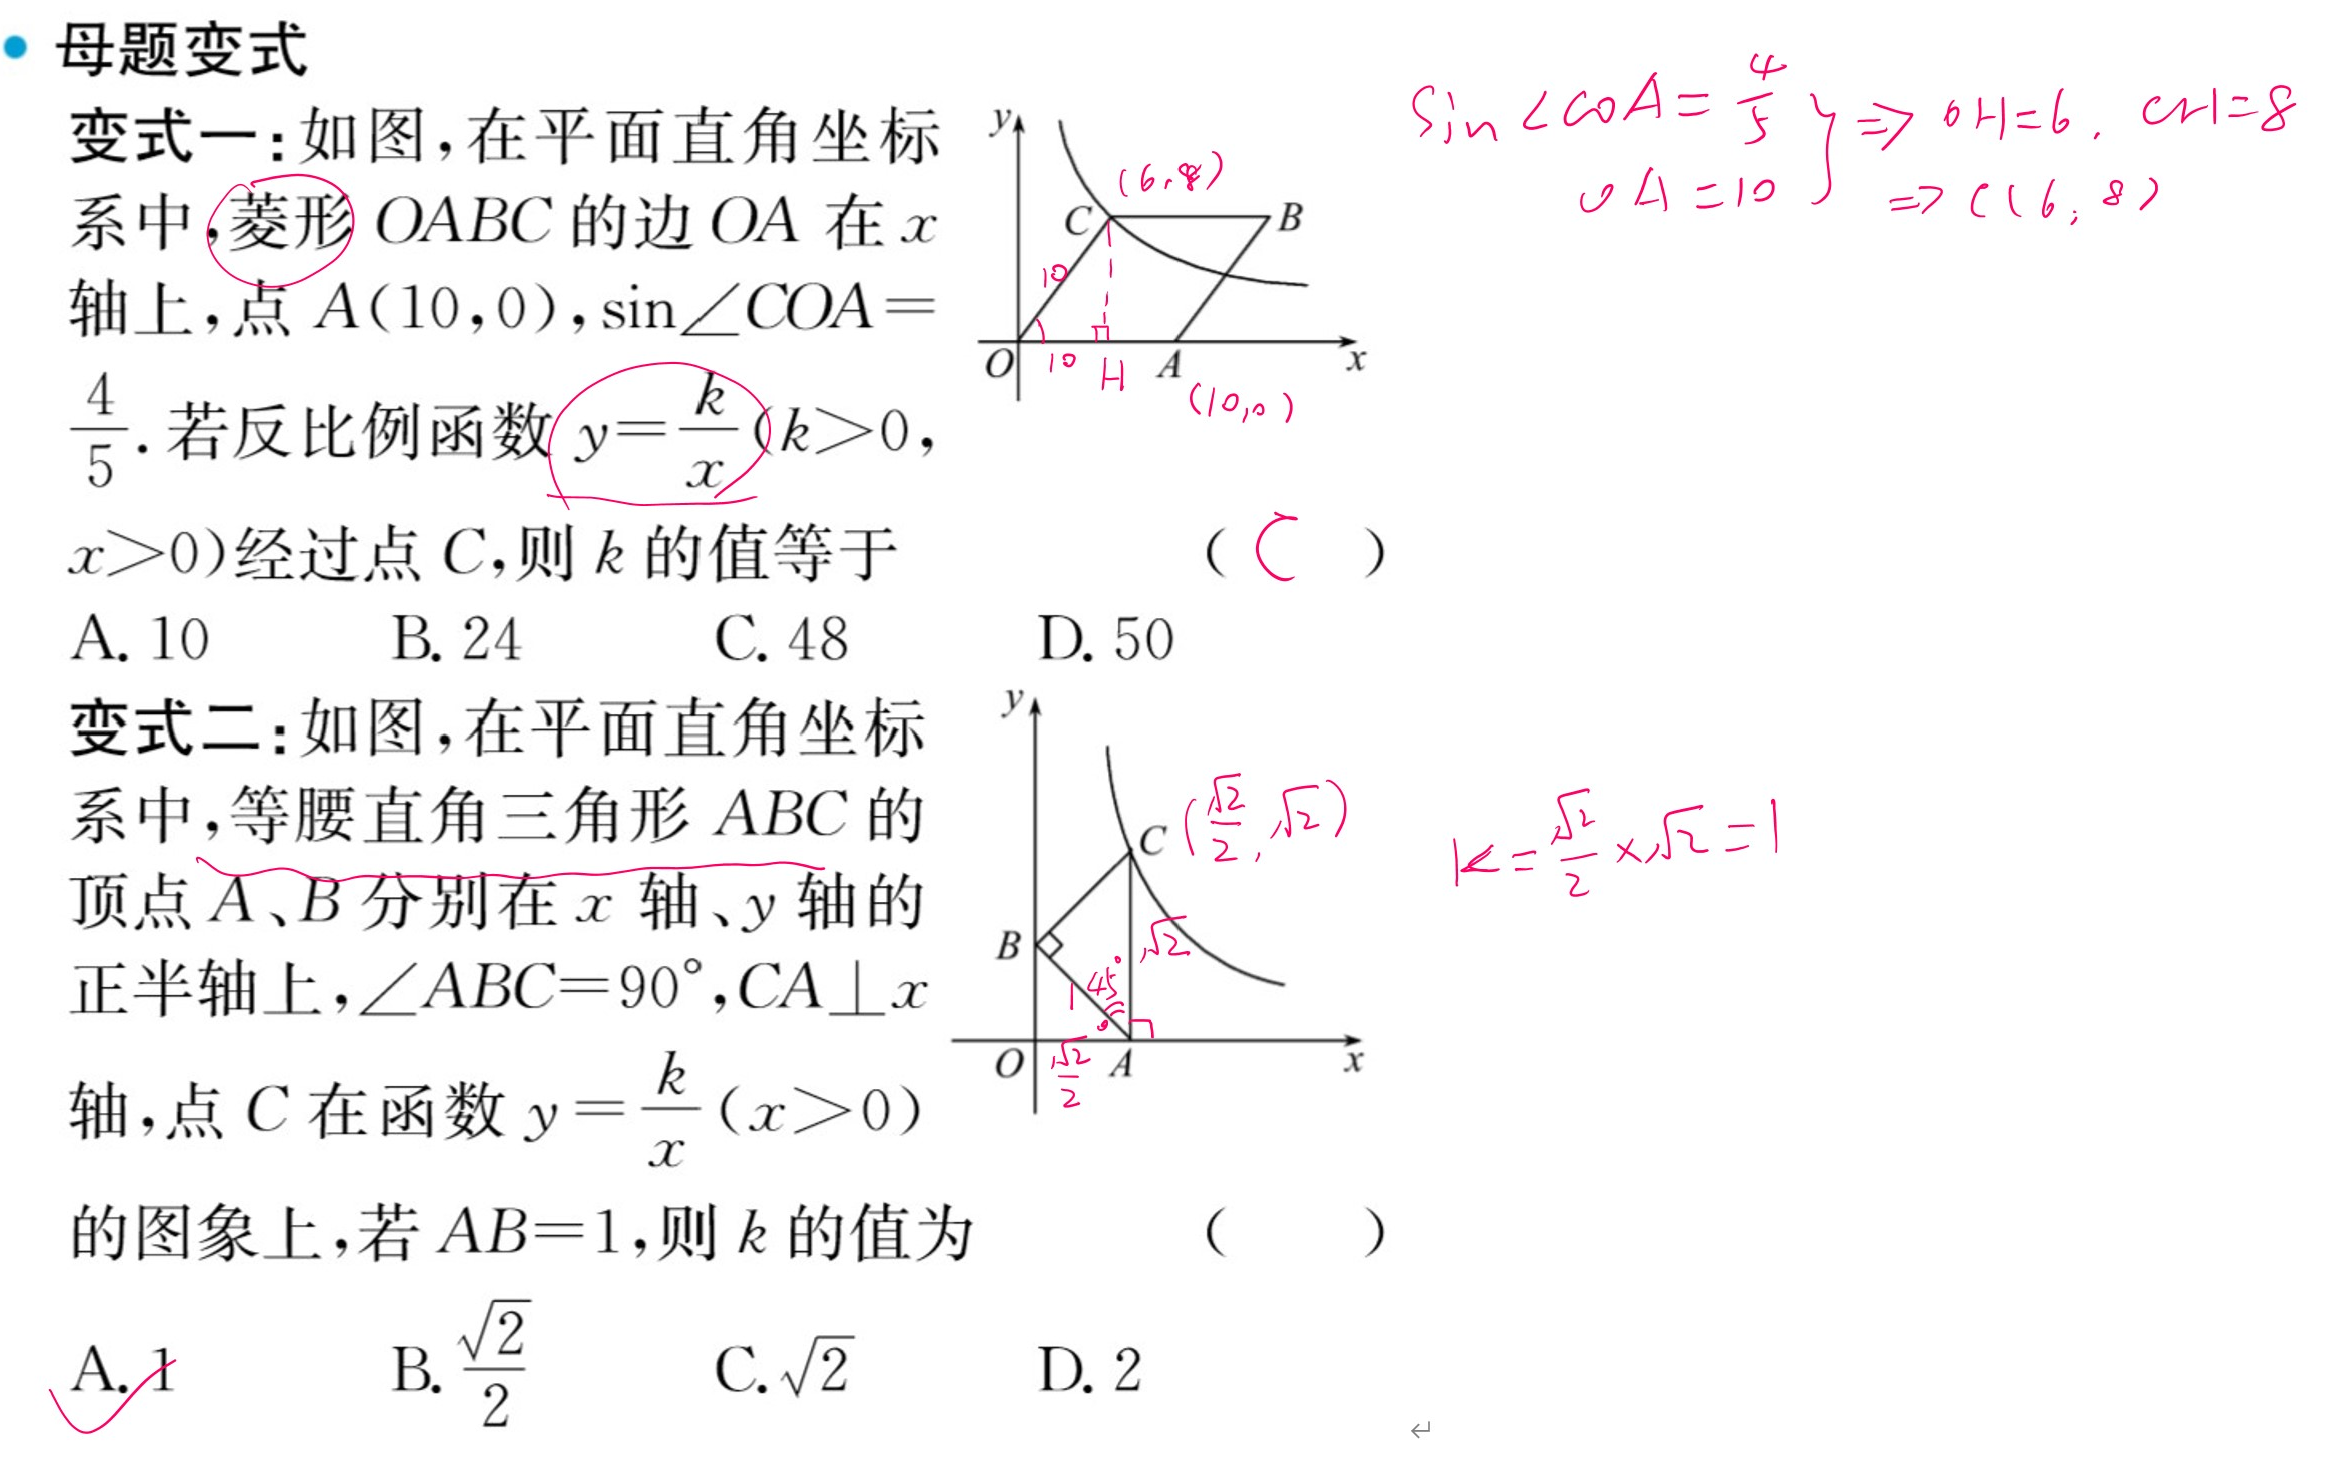 母题变式
变式一:如图,在平面直角坐标
系中,菱形 OABC 的边 OA 在 x
轴上,点 A(10,0),sin∠COA=
4/5.若反比例函数 y=k/x(k>0,
x>0)经过点 C,则 k 的值等于 ( C )
A. 10 B. 24 C. 48 D. 50
y
(6,8)
C B
10
O 10 H A x
(10,0)
Sin∠COA=4/5 } ⇒ OH=6, CH=8
OA=10 ⇒ C(6,8)
变式二:如图,在平面直角坐标
系中,等腰直角三角形 ABC 的
顶点 A、B 分别在 x 轴、y 轴的
正半轴上,∠ABC=90°,CA⊥x
轴,点 C 在函数 y=k/x(x>0)
的图象上,若 AB=1,则 k 的值为 ( )
A. 1 B. √2/2 C. √2 D. 2
y
C (√2/2, √2)
B √2
1 45°
O √2/2 A x
k=√2/2×√2=1
↵